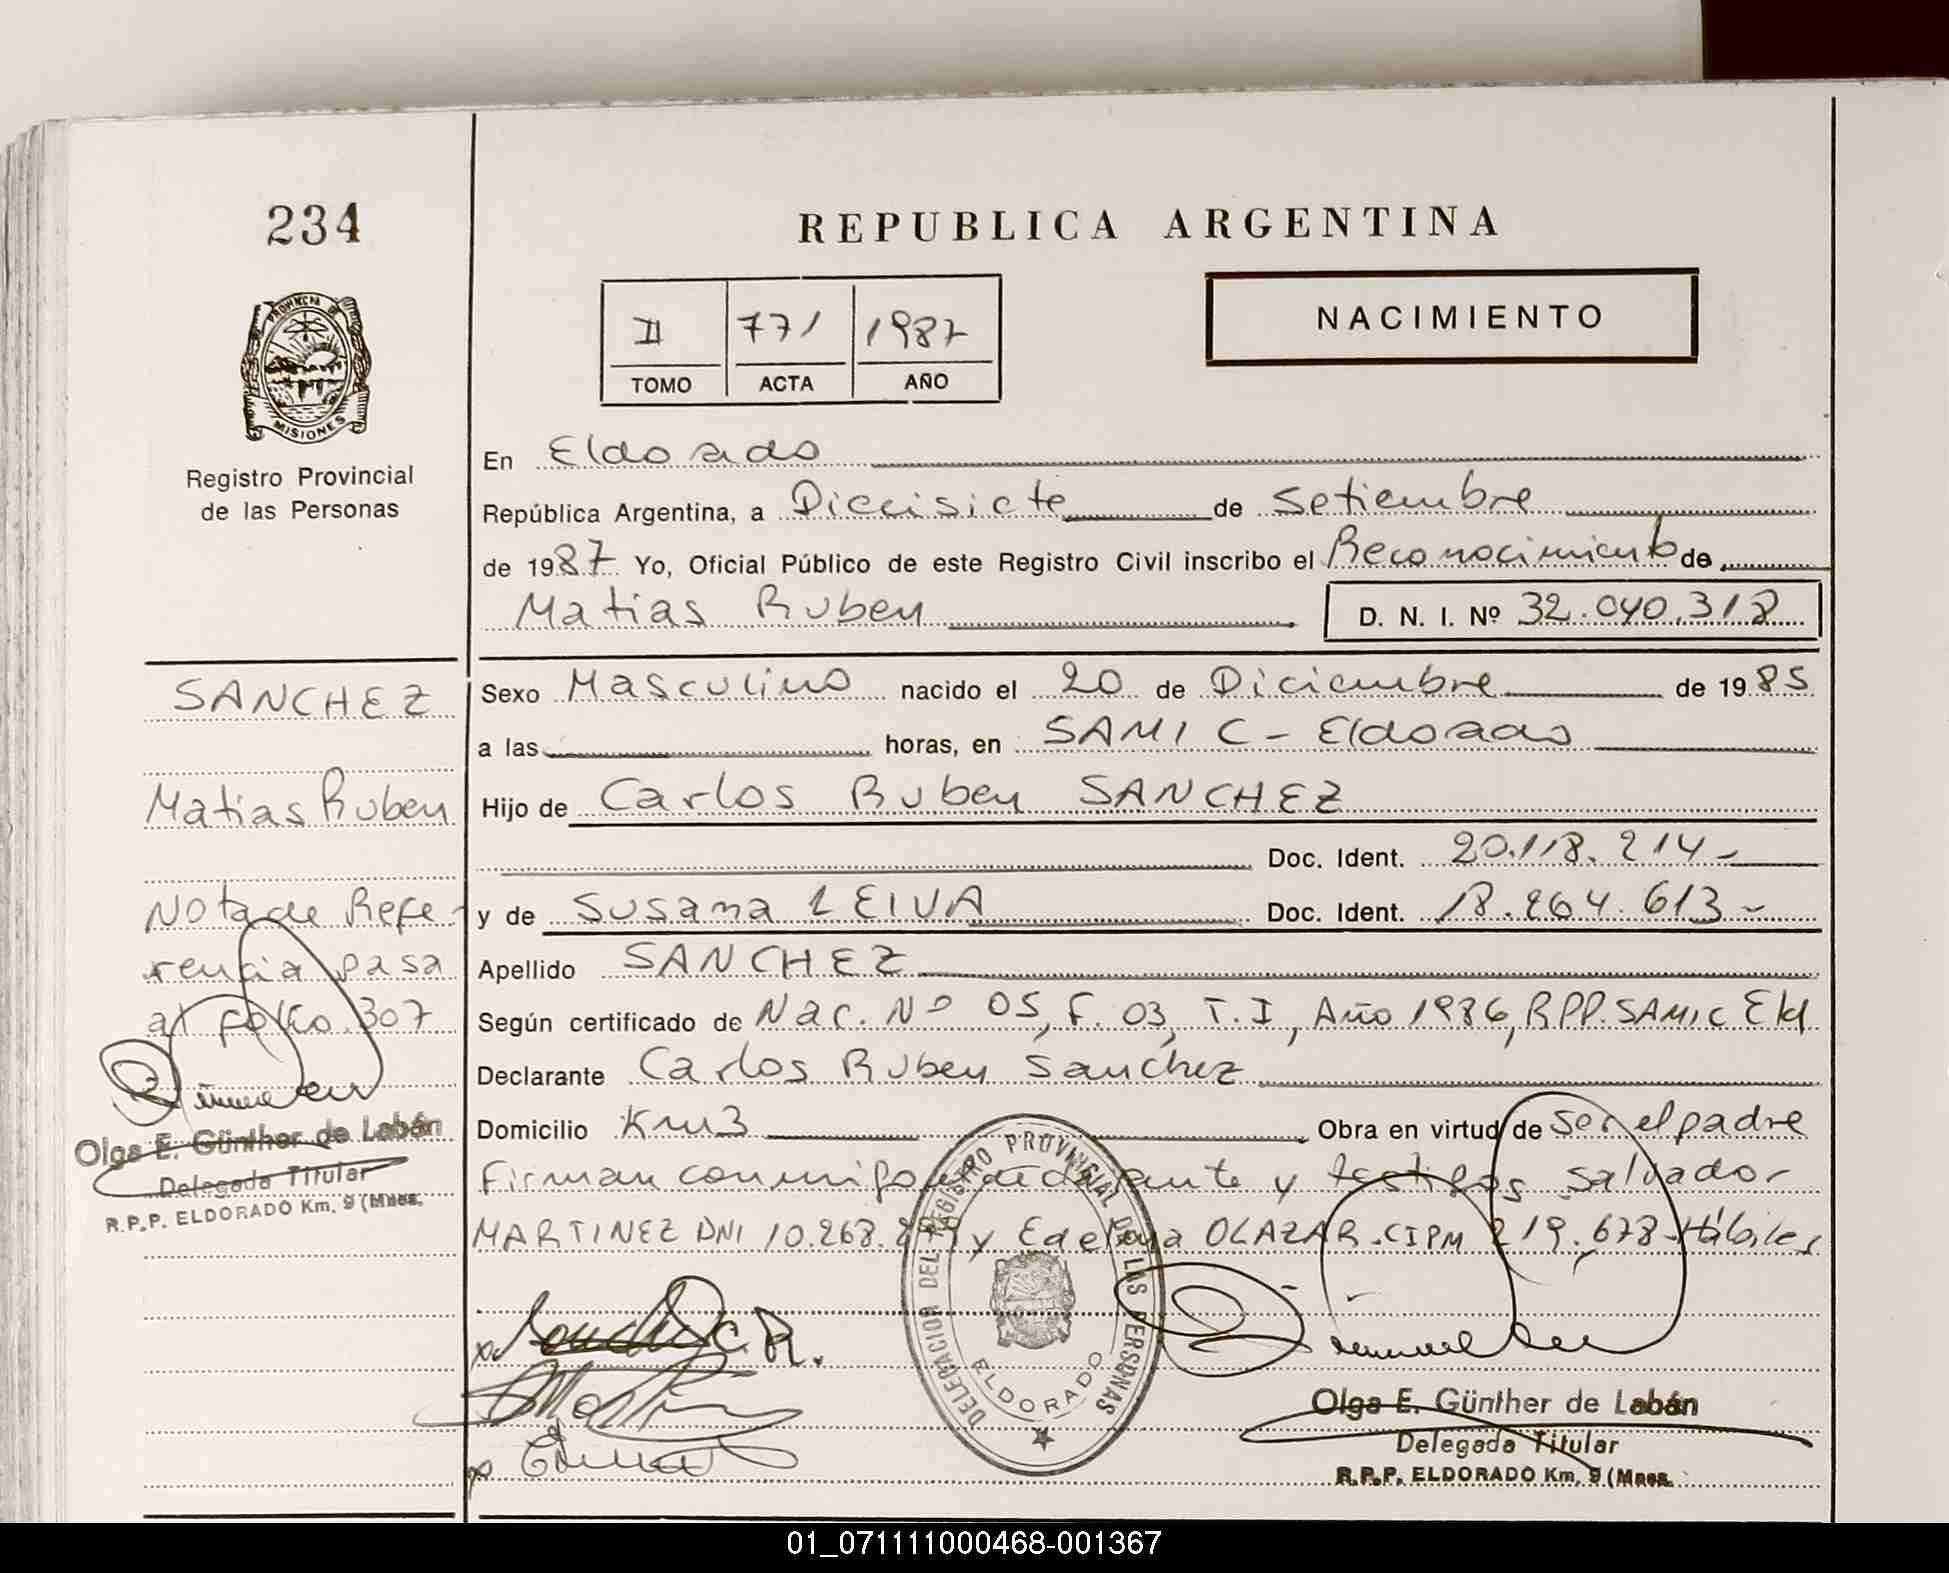 234
REPUBLICA ARGENTINA
PROVINCIA DE
MISIONES
Registro Provincial
de las Personas
II 771 1987
TOMO ACTA AÑO
NACIMIENTO
En Eldorado
República Argentina, a Diecisiete de Setiembre
de 1987 Yo, Oficial Público de este Registro Civil inscribo el Reconocimiento de
Matias Ruben D. N. I. Nº 32.040.318
SANCHEZ
Matias Ruben
Nota de Refe-
rencia pasa
al folio 307
Olga E. Günther de Labán
Delegada Titular
R.P.P. ELDORADO Km. 9 (Mnes.
Sexo Masculino nacido el 20 de Diciembre de 1985
a las horas, en SAMIC - Eldorado
Hijo de Carlos Ruben SANCHEZ
Doc. Ident. 20.118.214-
y de Susana LEIVA Doc. Ident. 18.264.613-
Apellido SANCHEZ
Según certificado de Nac. Nº 05, F. 03, T. I, Año 1986, RPP. SAMIC Eld
Declarante Carlos Ruben Sanchez
Domicilio Km 3 Obra en virtud de ser el padre
Firman conmigo declarante y testigos Salvador
MARTINEZ DNI 10.268. y OLAZAR. CIPM 219.678 Hábiles
DELEGACION DEL REGISTRO PROVINCIAL DE LAS PERSONAS
ELDORADO
Sanchez C. R.
Olga E. Günther de Labán
Delegada Titular
R.P.P. ELDORADO Km. 9 (Mnes.
01_071111000468-001367